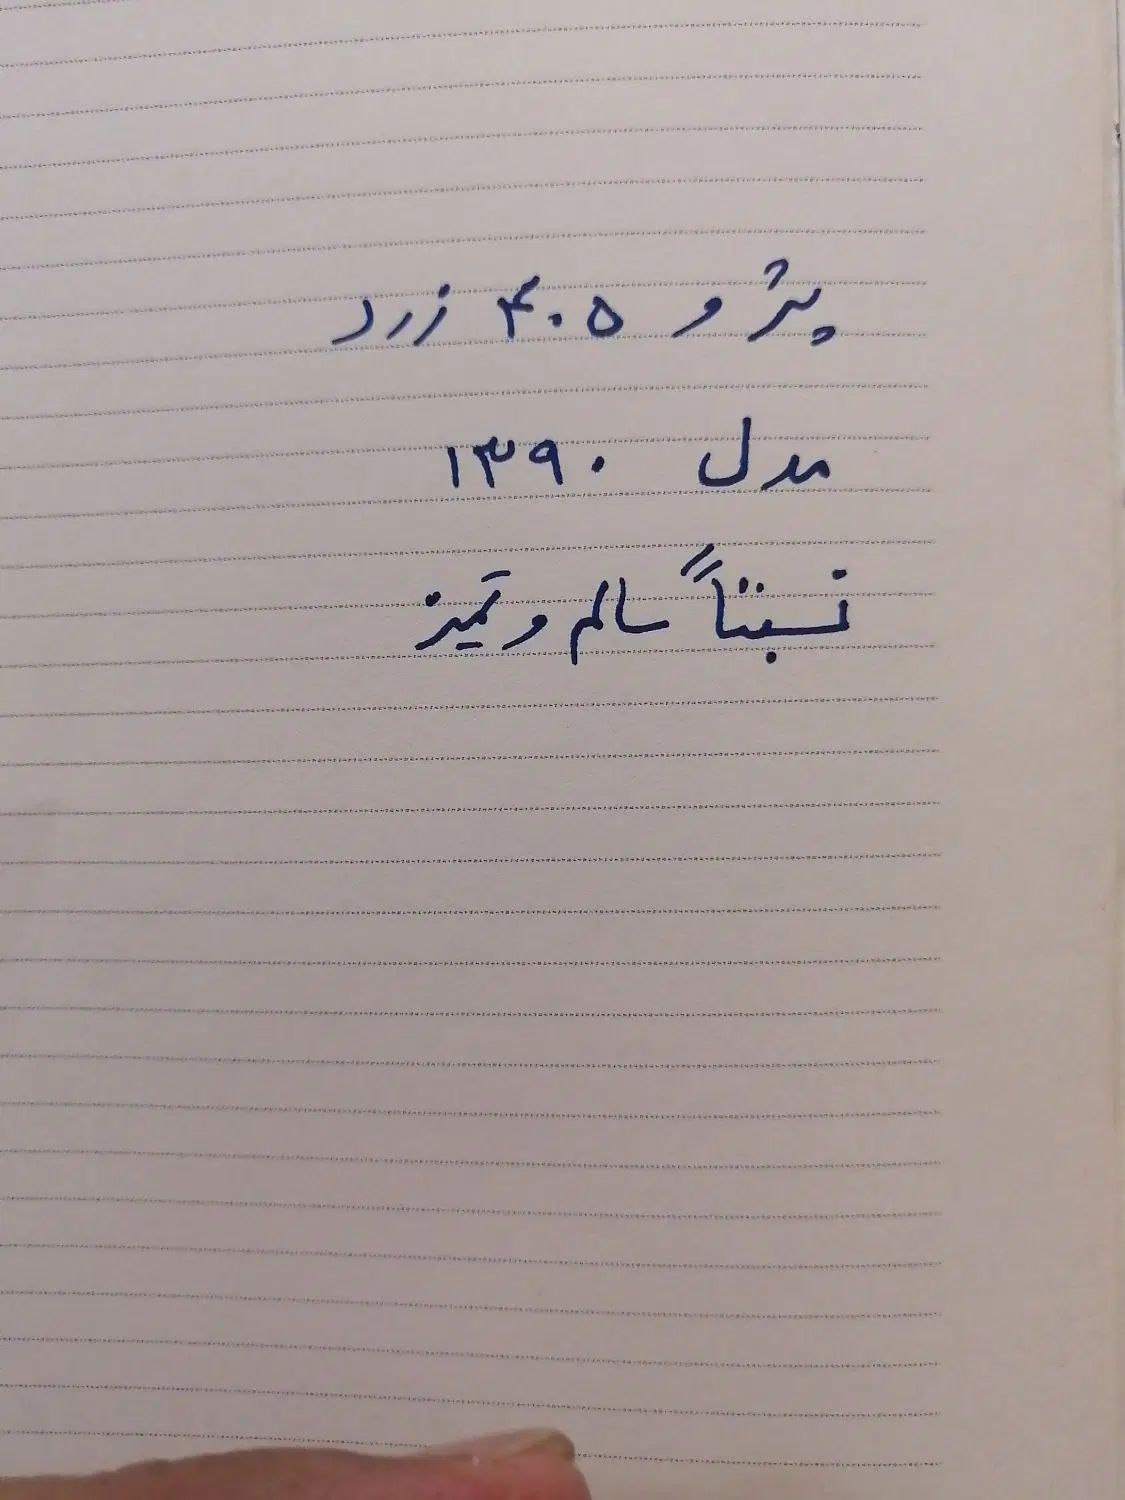 پژو ۴۰۵ زرد
مدل ۱۳۹۰
نسبتاً سالم و تمیز